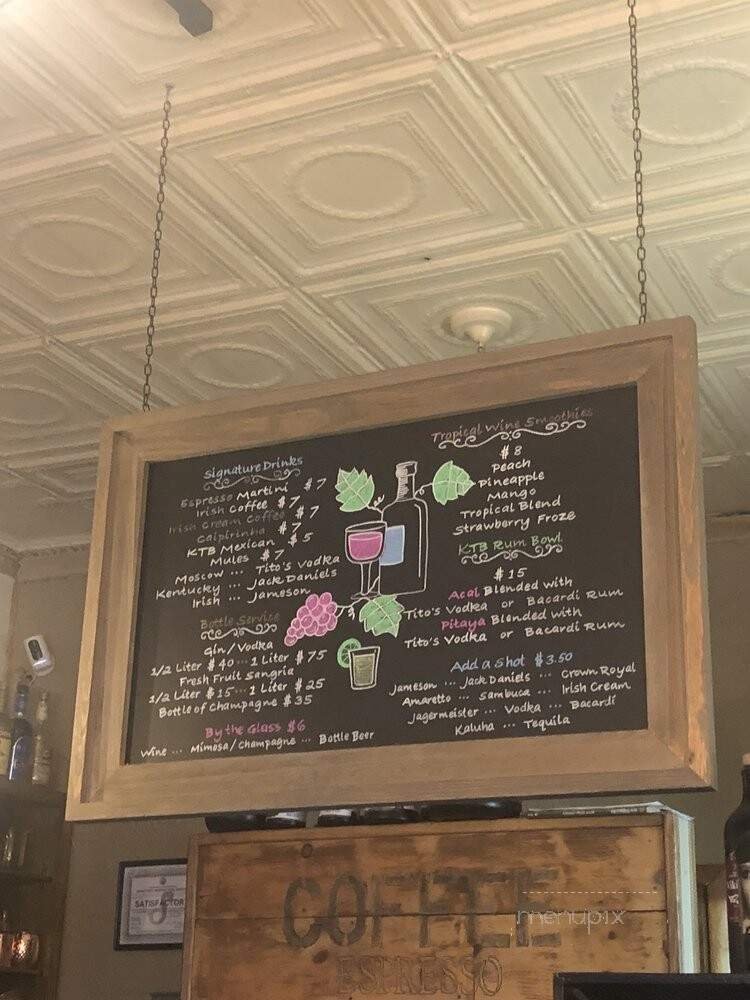 Signature Drinks
Espresso Martini $7
Irish Coffee $7
Irish Cream Coffee $7
Caipirinha $7
KTB Mexican $5
Mules $7
Moscow ... Tito's Vodka
Kentucky ... Jack Daniels
Irish ... Jameson
Bottle Service
Gin/Vodka
1/2 Liter $40 ... 1 Liter $75
Fresh Fruit Sangria
1/2 Liter $15 ... 1 Liter $25
Bottle of Champagne $35
By the Glass $6
Wine ... Mimosa/Champagne ... Bottle Beer
Tropical Wine Smoothies
$8
Peach
Pineapple
Mango
Tropical Blend
Strawberry Froze
KTB Rum Bowl
$15
Acai Blended with
Tito's Vodka or Bacardi Rum
Pitaya Blended with
Tito's Vodka or Bacardi Rum
Add a Shot $3.50
Jameson ... Jack Daniels ... Crown Royal
Amaretto ... Sambuca ... Irish Cream
Jagermeister ... Vodka ... Bacardi
Kaluha ... Tequila
COFFEE
ESPRESSO
SATISFACTOR
menupix